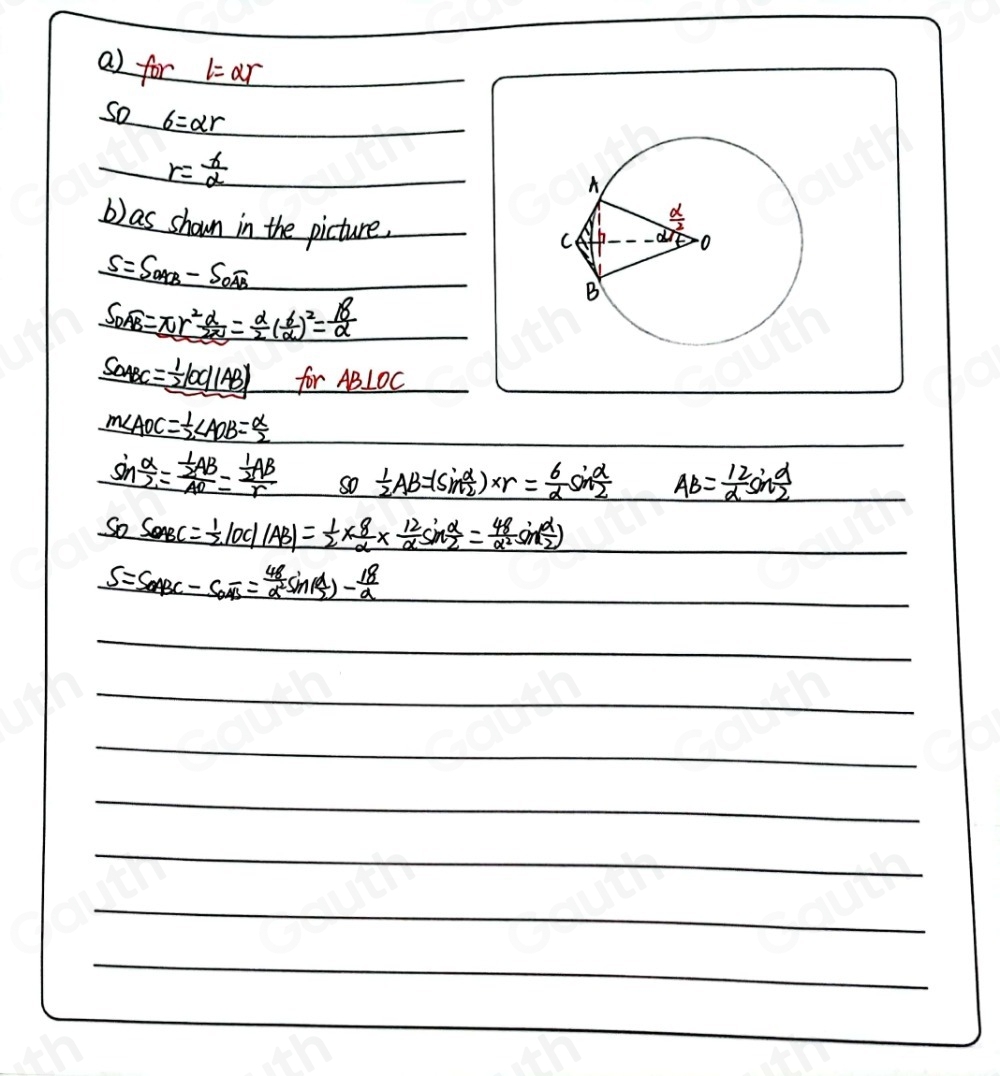 a) for l=αr
so 6=αr
r=6/α
b) as shown in the picture.
S=S_OACB - S_OAB⌢
S_OAB⌢=πr² α/2π = α/2 (6/α)² = 18/α
S_OABC=1/2|OC||AB| for AB⊥OC
m∠AOC=1/2∠AOB=α/2
sin α/2 = (1/2AB)/AO = (1/2AB)/r so 1/2AB=(sin α/2)×r = 6/α sin α/2 AB = 12/α sin α/2
So S_OABC=1/2|OC||AB| = 1/2 × 8/α × 12/α sin α/2 = 48/α² sin(α/2)
S=S_OABC - S_OAB⌢ = 48/α² sin(α/2) - 18/α
A
α/2
C
O
B
Gauth